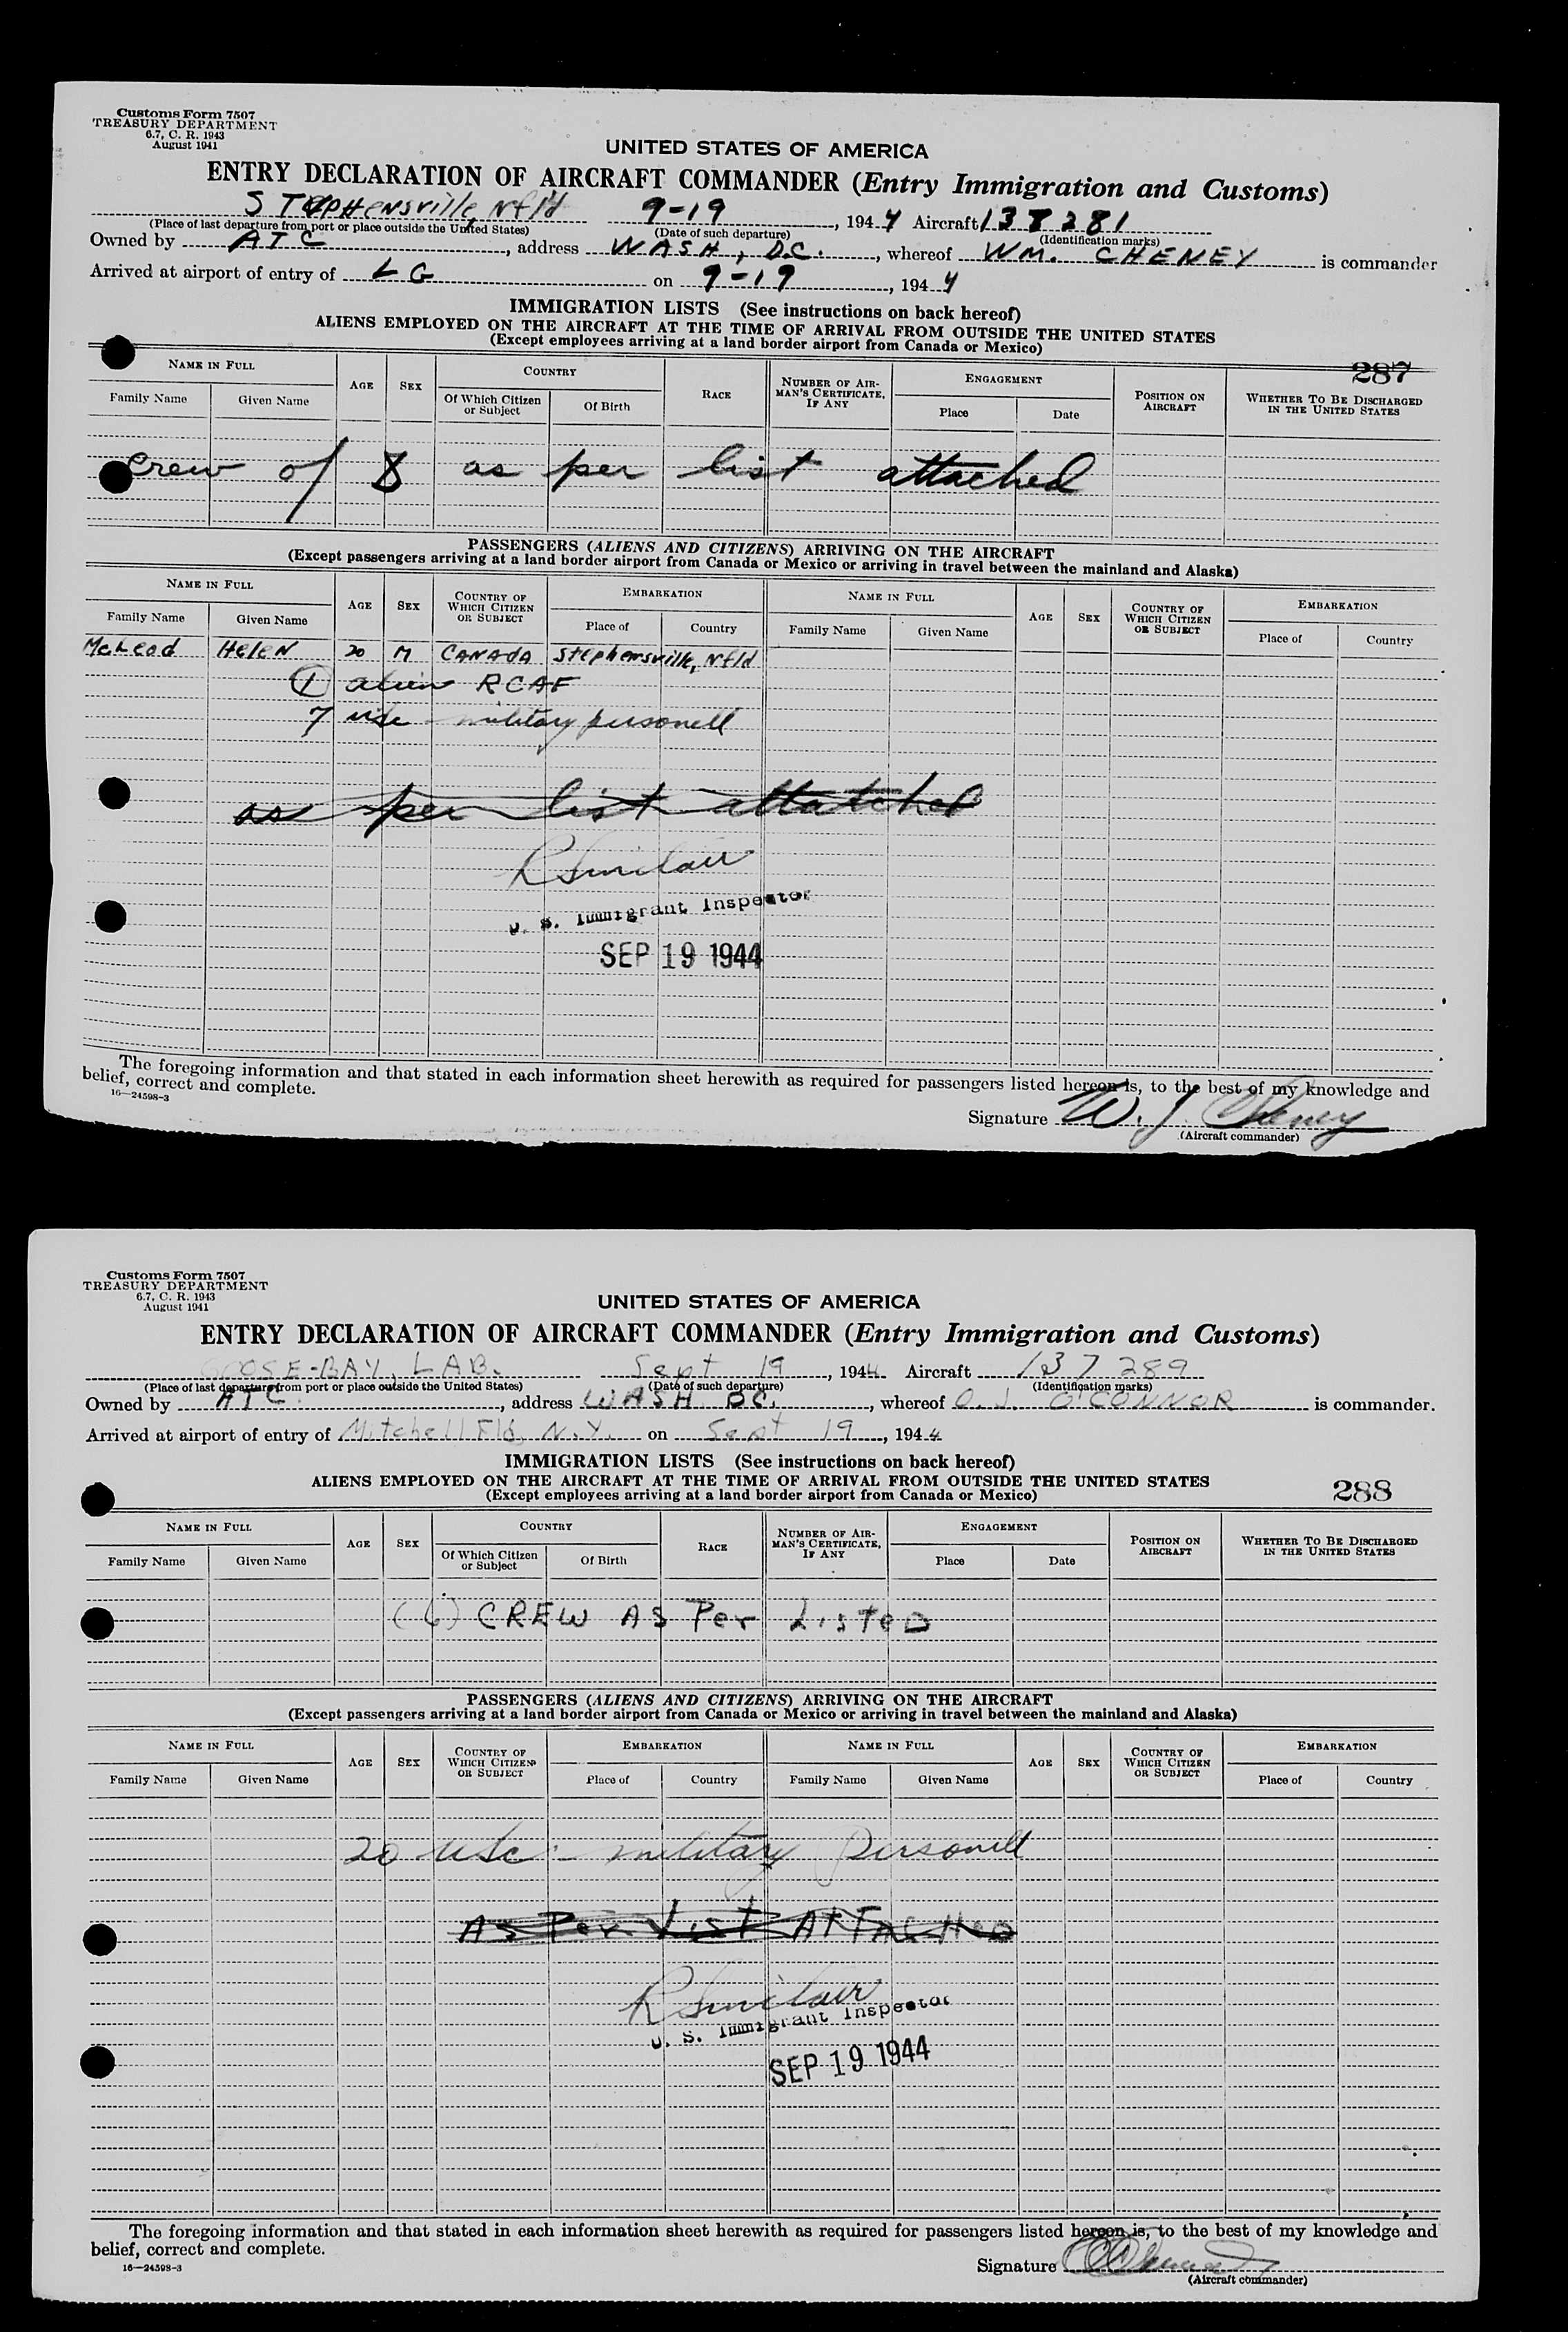 Customs Form 7507
TREASURY DEPARTMENT
6.7, C. R. 1943
August 1941
UNITED STATES OF AMERICA
ENTRY DECLARATION OF AIRCRAFT COMMANDER (Entry Immigration and Customs)
STEPHensville, Nfld 9-19, 1944 Aircraft 138281
(Place of last departure from port or place outside the United States) (Date of such departure) (Identification marks)
Owned by ATC, address WASH, D.C., whereof WM. CHENEY is commander
Arrived at airport of entry of LG on 9-19, 1944
IMMIGRATION LISTS (See instructions on back hereof)
ALIENS EMPLOYED ON THE AIRCRAFT AT THE TIME OF ARRIVAL FROM OUTSIDE THE UNITED STATES
(Except employees arriving at a land border airport from Canada or Mexico)
287
NAME IN FULL AGE SEX COUNTRY RACE NUMBER OF AIRMAN'S CERTIFICATE, IF ANY ENGAGEMENT POSITION ON AIRCRAFT WHETHER TO BE DISCHARGED IN THE UNITED STATES
Family Name Given Name Of Which Citizen or Subject Of Birth Place Date
Crew of 8 as per list attached
PASSENGERS (ALIENS AND CITIZENS) ARRIVING ON THE AIRCRAFT
(Except passengers arriving at a land border airport from Canada or Mexico or arriving in travel between the mainland and Alaska)
NAME IN FULL AGE SEX COUNTRY OF WHICH CITIZEN OR SUBJECT EMBARKATION NAME IN FULL AGE SEX COUNTRY OF WHICH CITIZEN OR SUBJECT EMBARKATION
Family Name Given Name Place of Country Family Name Given Name Place of Country
McLeod HeleN 20 M CANAdA Stephensville, Nfld
1 alien RCAF
7 usc - military personell
as per list attatched
R Sinclair
U. S. Immigrant Inspector
SEP 19 1944
The foregoing information and that stated in each information sheet herewith as required for passengers listed hereon is, to the best of my knowledge and
belief, correct and complete.
16—24598-3
Signature W. J. Cheney
(Aircraft commander)
Customs Form 7507
TREASURY DEPARTMENT
6.7, C. R. 1943
August 1941
UNITED STATES OF AMERICA
ENTRY DECLARATION OF AIRCRAFT COMMANDER (Entry Immigration and Customs)
GOOSE-BAY, LAB. Sept 19, 1944 Aircraft 137289
(Place of last departure from port or place outside the United States) (Date of such departure) (Identification marks)
Owned by ATC., address WASH DC., whereof O. J. O'CONNOR is commander.
Arrived at airport of entry of Mitchell Fld, N.Y. on Sept 19, 1944
IMMIGRATION LISTS (See instructions on back hereof)
ALIENS EMPLOYED ON THE AIRCRAFT AT THE TIME OF ARRIVAL FROM OUTSIDE THE UNITED STATES
(Except employees arriving at a land border airport from Canada or Mexico)
288
NAME IN FULL AGE SEX COUNTRY RACE NUMBER OF AIRMAN'S CERTIFICATE, IF ANY ENGAGEMENT POSITION ON AIRCRAFT WHETHER TO BE DISCHARGED IN THE UNITED STATES
Family Name Given Name Of Which Citizen or Subject Of Birth Place Date
(6) CREW AS Per ListeD
PASSENGERS (ALIENS AND CITIZENS) ARRIVING ON THE AIRCRAFT
(Except passengers arriving at a land border airport from Canada or Mexico or arriving in travel between the mainland and Alaska)
NAME IN FULL AGE SEX COUNTRY OF WHICH CITIZEN OR SUBJECT EMBARKATION NAME IN FULL AGE SEX COUNTRY OF WHICH CITIZEN OR SUBJECT EMBARKATION
Family Name Given Name Place of Country Family Name Given Name Place of Country
20 usc - military personell
As Per List ATTACHeD
R Sinclair
U. S. Immigrant Inspector
SEP 19 1944
The foregoing information and that stated in each information sheet herewith as required for passengers listed hereon is, to the best of my knowledge and
belief, correct and complete.
16—24598-3
Signature
(Aircraft commander)